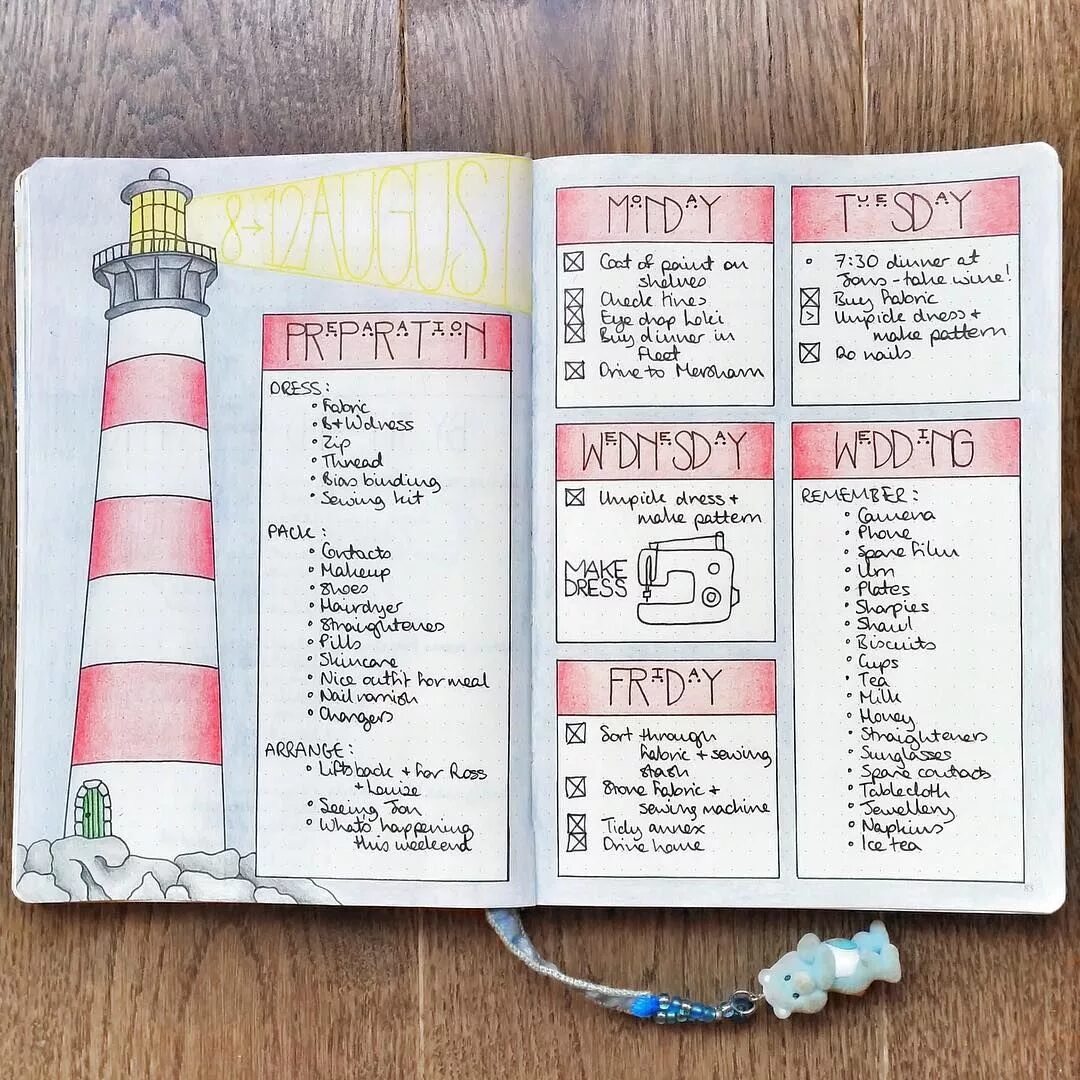 8→12 AUGUST
PREPARATION
DRESS:
• Fabric
• B+W dress
• Zip
• Thread
• Bias binding
• Sewing kit
PACK:
• Contacts
• Makeup
• Shoes
• Hairdyer
• Straighteners
• Pills
• Skincare
• Nice outfit for meal
• Nail varnish
• Chargers
ARRANGE:
• Lifts back + for Ross
+ Louise
• Seeing Jon
• What's happening
this weekend
MONDAY
Coat of paint on
shelves
Check tires
Eye drop Loki
Buy dinner in
Fleet
Drive to Mersham
TUESDAY
• 7:30 dinner at
Jons - take wine!
Buy Fabric
> Unpick dress +
make pattern
Do nails
WEDNESDAY
Unpick dress +
make pattern
MAKE
DRESS
FRIDAY
Sort through
fabric + sewing
stash
Store fabric +
sewing machine
Tidy annex
Drive home
WEDDING
REMEMBER:
• Camera
• Phone
• Spare film
• Urn
• Plates
• Sharpies
• Shawl
• Biscuits
• Cups
• Tea
• Milk
• Money
• Straighteners
• Sunglasses
• Spare contacts
• Tablecloth
• Jewellery
• Napkins
• Ice tea
83